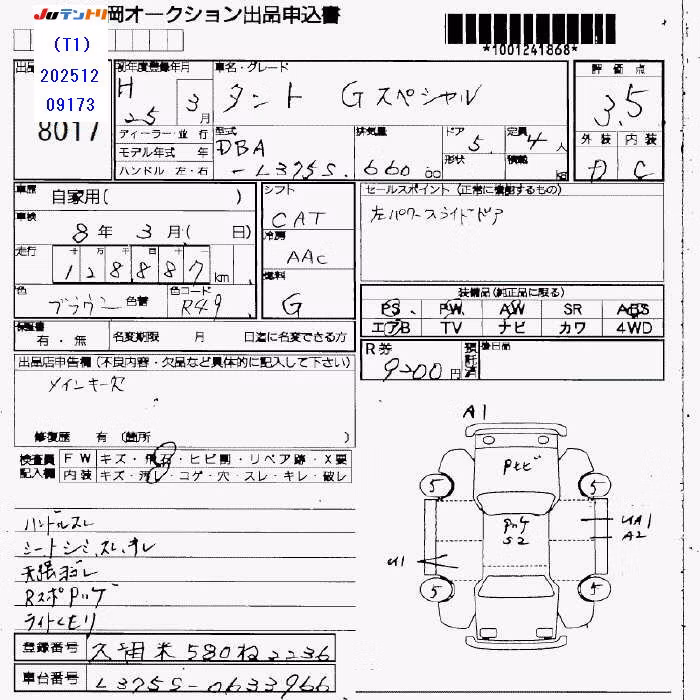 Juテントリ 岡オークション出品申込書
*1001241868*
(T1)
202512
09173
8017
初年度登録年月
H 25 年 3 月
車名・グレード
タント Gスペシャル
評価点
3.5
外装 内装
D C
ディーラー・並行
モデル年式 年
ハンドル 左・右
型式
DBA
-L375S.
排気量
660 cc
ドア 5.
形状
定員 4 人
積載 kg
車歴
自家用( )
車検
8年 3月( 日)
走行
128887 km
色
ブラウン 色替
色コード
R49
シフト
CAT
冷房
AAC
燃料
G
セールスポイント (正常に機能するもの)
左パワースライドドア
装備品 (純正品に限る)
PS PW AW SR ABS
エアB TV ナビ カワ 4WD
保証書
有・無
名変期限 月 日迄に名変できる方
R券
9200円
預託済
後日品
出品店申告欄 (不良内容・欠品など具体的に記入して下さい)
メインキー欠
修復歴 有 (箇所 )
検査員
記入欄
FW キズ・飛石・ヒビ割・リペア跡・X要
内装 キズ・汚レ・コゲ・穴・スレ・キレ・破レ
ハンドルスレ
シートシミ、スレ、キレ
天張ヨゴレ
RスポPハゲ
ライトくもり
A1
Pトビ
5 5
Pハゲ
S2
UA1
A2
U1
5 5
登録番号
久留米 580 ね 2236
車台番号
L375S-0633966